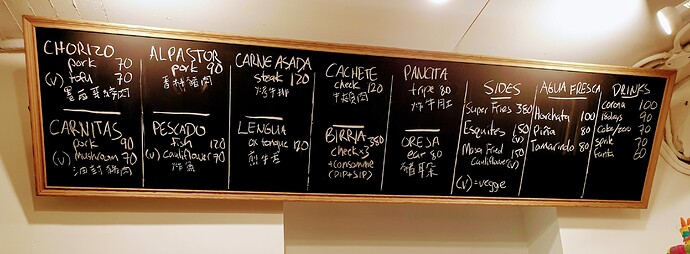 CHORIZO
pork 70
(v) tofu 70
墨西哥烤肉
CARNITAS
pork 90
(v) mushroom 70
油封豬肉
AL PASTOR
pork 90
香料豬肉
PESCADO
fish 120
(v) cauliflower 90
炸魚
CARNE ASADA
steak 120
烤牛排
LENGUA
ox tongue 120
CACHETE
check 120
BIRRIA 350
check x3
+consomme
(DIP+SIP)
PANCITA
tripe 80
炸牛肚
OREJA
ear 80
豬耳朵
SIDES
Super Fries 380
Esquites 150
(v)
Masa Fried 150
Cauliflower (v)
(v) = veggie
AGUA FRESCA
Horchata 100
Piña 80
Tamarindo 80
DRINKS
corona 100
90
coke/zero 70
sprite 70
fanta 60